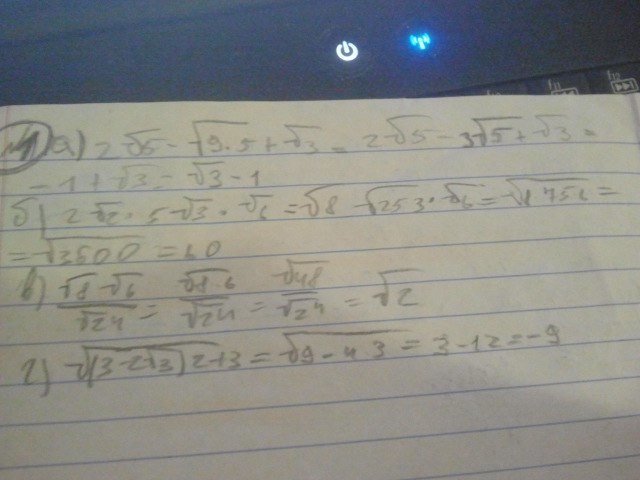 №1 а) 2√5 - √9·5 + √3 = 2√5 - 3√5 + √3 =
- 1 + √3 = √3 - 1
б) 2√2 · 5√3 · √6 = √8 · √25 3 · √6 = √8 75 6 =
= √3600 = 60
в) √8 √6 / √24 = √8 6 / √24 = √48 / √24 = √2
г) √(3-2√3)2+3 = √9 - 4 3 = 3 - 12 = -9